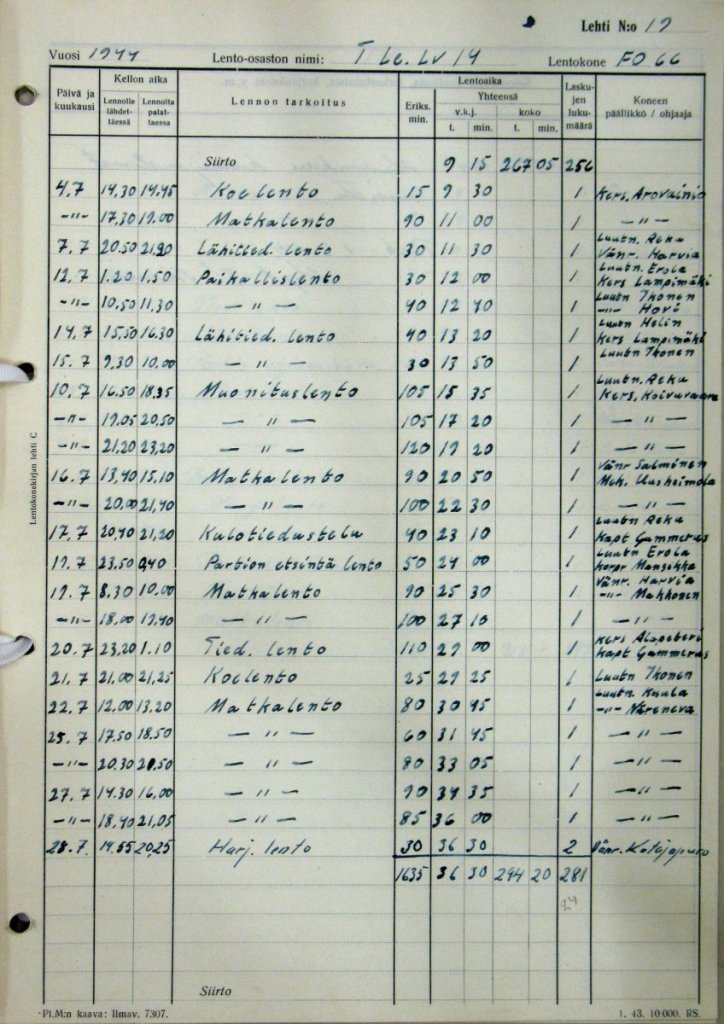 Lehti N:o 19
Vuosi 1944 Lento-osaston nimi: T Le. Lv 14 Lentokone FO 66
Päivä ja kuukausi Kellon aika Lennolle lähdettäessä Lennolta palattaessa Lennon tarkoitus Lentoaika Eriks. min. Yhteensä v.k.j. t. min. koko t. min. Laskujen lukumäärä Koneen päällikkö / ohjaaja
Siirto 9 15 267 05 256
4.7 14,30 14,45 Koelento 15 9 30 1 Kers. Arovainio
-"- 17,30 19.00 Matkalento 90 11 00 1 — " —
7.7 20,50 21,20 Lähitied. lento 30 11 30 1 Luutn. Reka Vänr. Harvia
12.7 1.20 1.50 Paikallislento 30 12 00 1 Luutn. Erola Kers Lampimäki
-"- 10,50 11,30 — " — 40 12 40 1 Luutn Ikonen -"- Hovi
14.7 15,50 16.30 Lähitied. lento 40 13 20 1 Luutn Helin Kers Lampimäki
15.7 9,30 10,00 — " — 30 13 50 1 Luutn Ikonen
10.7 16,50 18,35 Muonituslento 105 15 35 1 Luutn. Reka Kers. Koivuvaara
-"- 19,05 20,50 — " — 105 17 20 1 — " —
-"- 21,20 23,20 — " — 120 19 20 1 — " —
16.7 13,40 15,10 Matkalento 90 20 50 1 Vänr Salminen Mek. Uusheimola
-"- 20,00 21,40 — " — 100 22 30 1 — " —
17.7 20,40 21,20 Kulotiedustelu 40 23 10 1 Luutn Reka Kapt Gammerus
19.7 23,50 0,40 Partion etsintä lento 50 24 00 1 Luutn Erola Korpr Manschka
19.7 8.30 10.00 Matkalento 90 25 30 1 Vänr. Harvia -"- Makkonen
-"- 18,00 19,40 — " — 100 27 10 1 — " —
20.7 23,20 1.10 Tied. lento 110 29 00 1 Kers Alapeteri Kapt Gammerus
21.7 21,00 21,25 Koelento 25 29 25 1 Luutn Ikonen
22.7 12,00 13,20 Matkalento 80 30 45 1 Luutn. Kuula -"- Näreneva
25.7 17,50 18,50 — " — 60 31 45 1 — " —
-"- 20,30 21,50 — " — 80 33 05 1 — " —
27.7 14.30 16,00 — " — 90 34 35 1 — " —
-"- 18,40 21,05 — " — 85 36 00 1 — " —
28.7. 19.55 20,25 Harj. lento 30 36 30 2 Vänr. Katajapuro
1635 36 30 294 20 281
24
Siirto
Lentokonekirjan lehti C
Pl.M:n kaava: Ilmav. 7307. 1. 43. 10 000. RS.